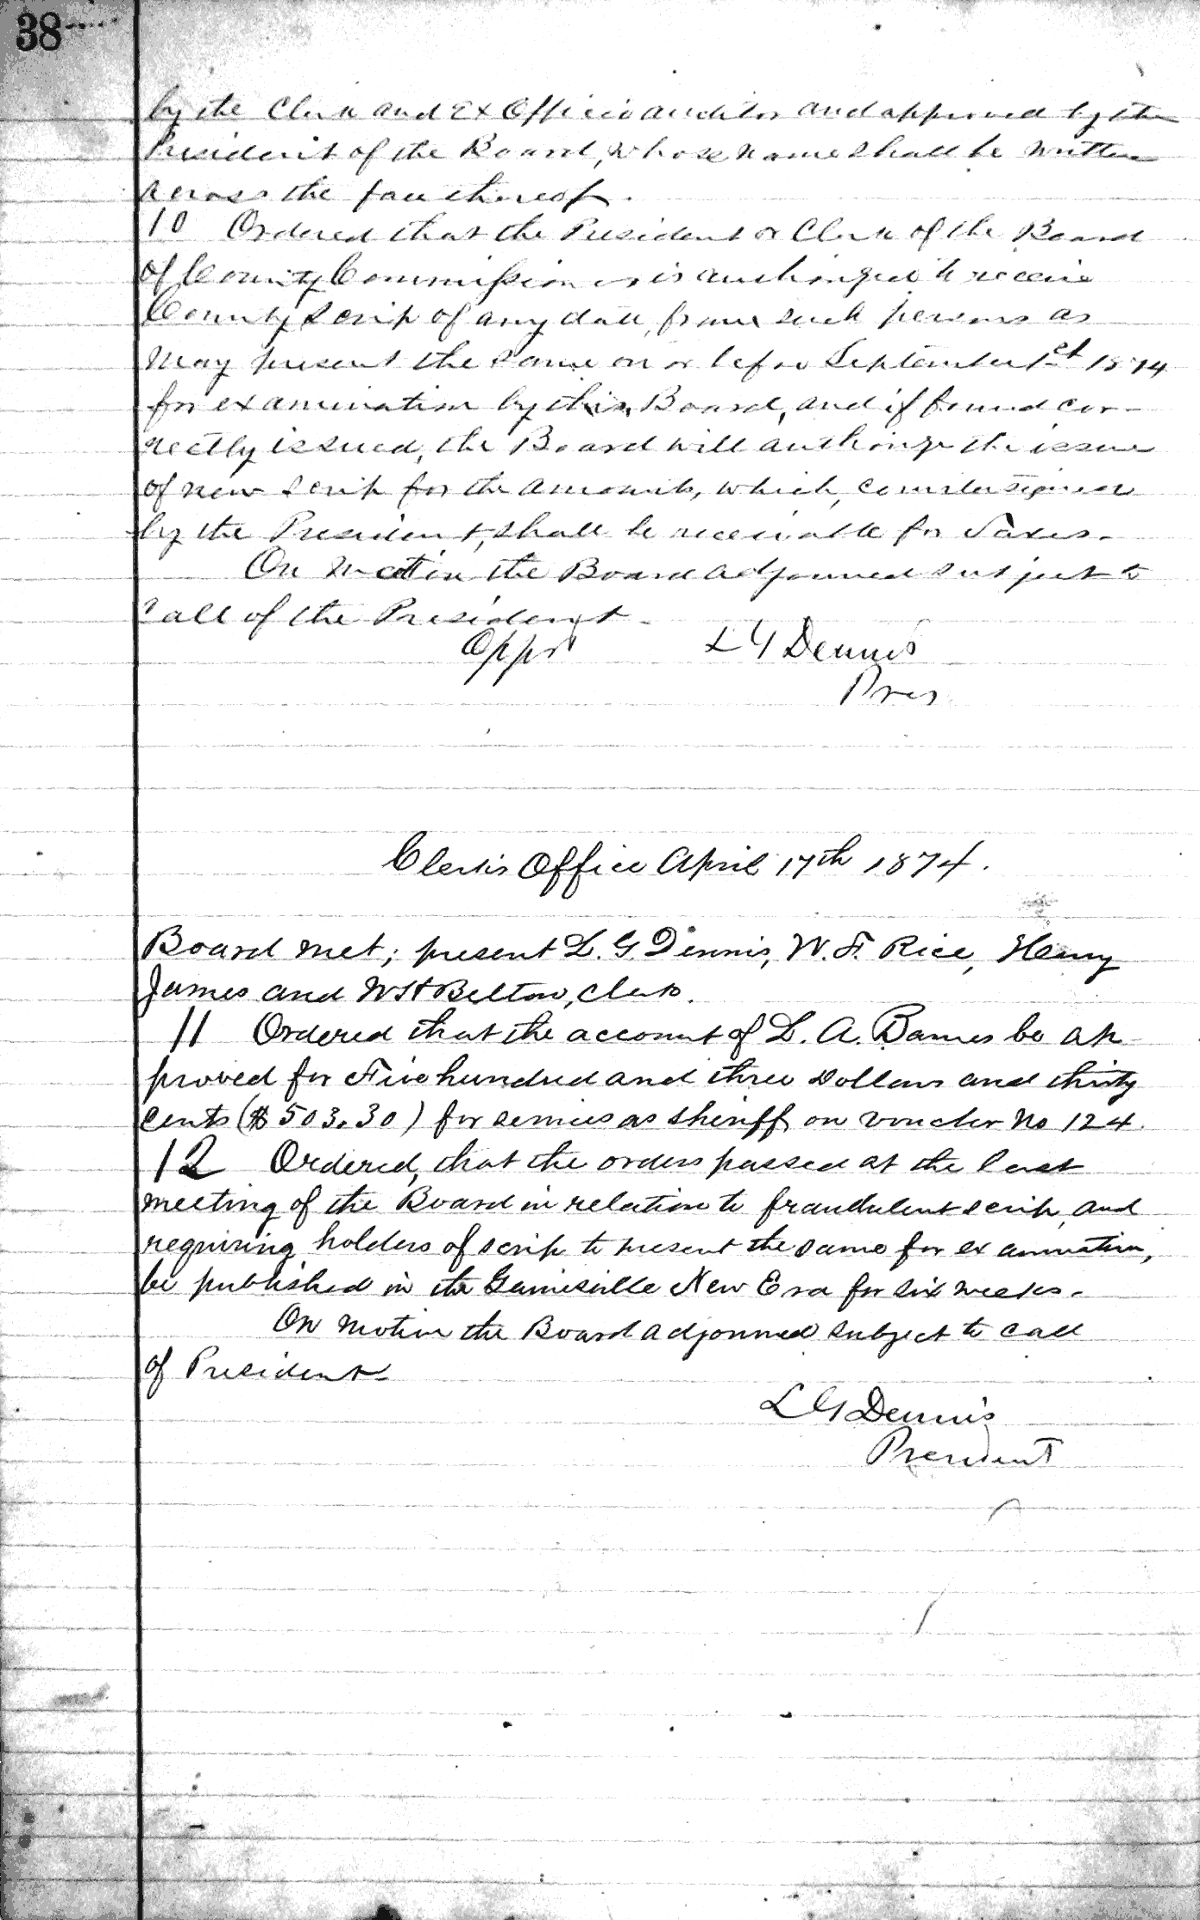 38
by the Clerk and Ex Officio auditor and approved by the
President of the Board, whose name shall be written
across the face thereof.
10 Ordered that the President or Clerk of the Board
of County Commissioners is authorized to receive
County Scrip of any date, from such persons as
May present the same on or before September 1st 1874
for examination by this Board, and if found cor-
rectly issued, the Board will authorize the issue
of new scrip for the amounts, which, countersigned
by the President, shall be receivable for Taxes.
On Motion the Board adjourned subject to
call of the President.
Appd L G Dennis
Pres
Clerk's Office April 17th 1874.
Board met; present L. G. Dennis, W. F. Rice, Henry
James and W H Belton, Clerk.
11 Ordered that the account of L. A. Barnes be ap
proved for Five hundred and three Dollars and thirty
cents ($503.30) for services as Sheriff on voucher No 124.
12 Ordered, that the orders passed at the last
meeting of the Board in relation to fraudulent scrip, and
requiring holders of scrip to present the same for examination,
be published in the Gainesville New Era for six weeks.
On motion the Board adjourned subject to call
of President
L G Dennis
President